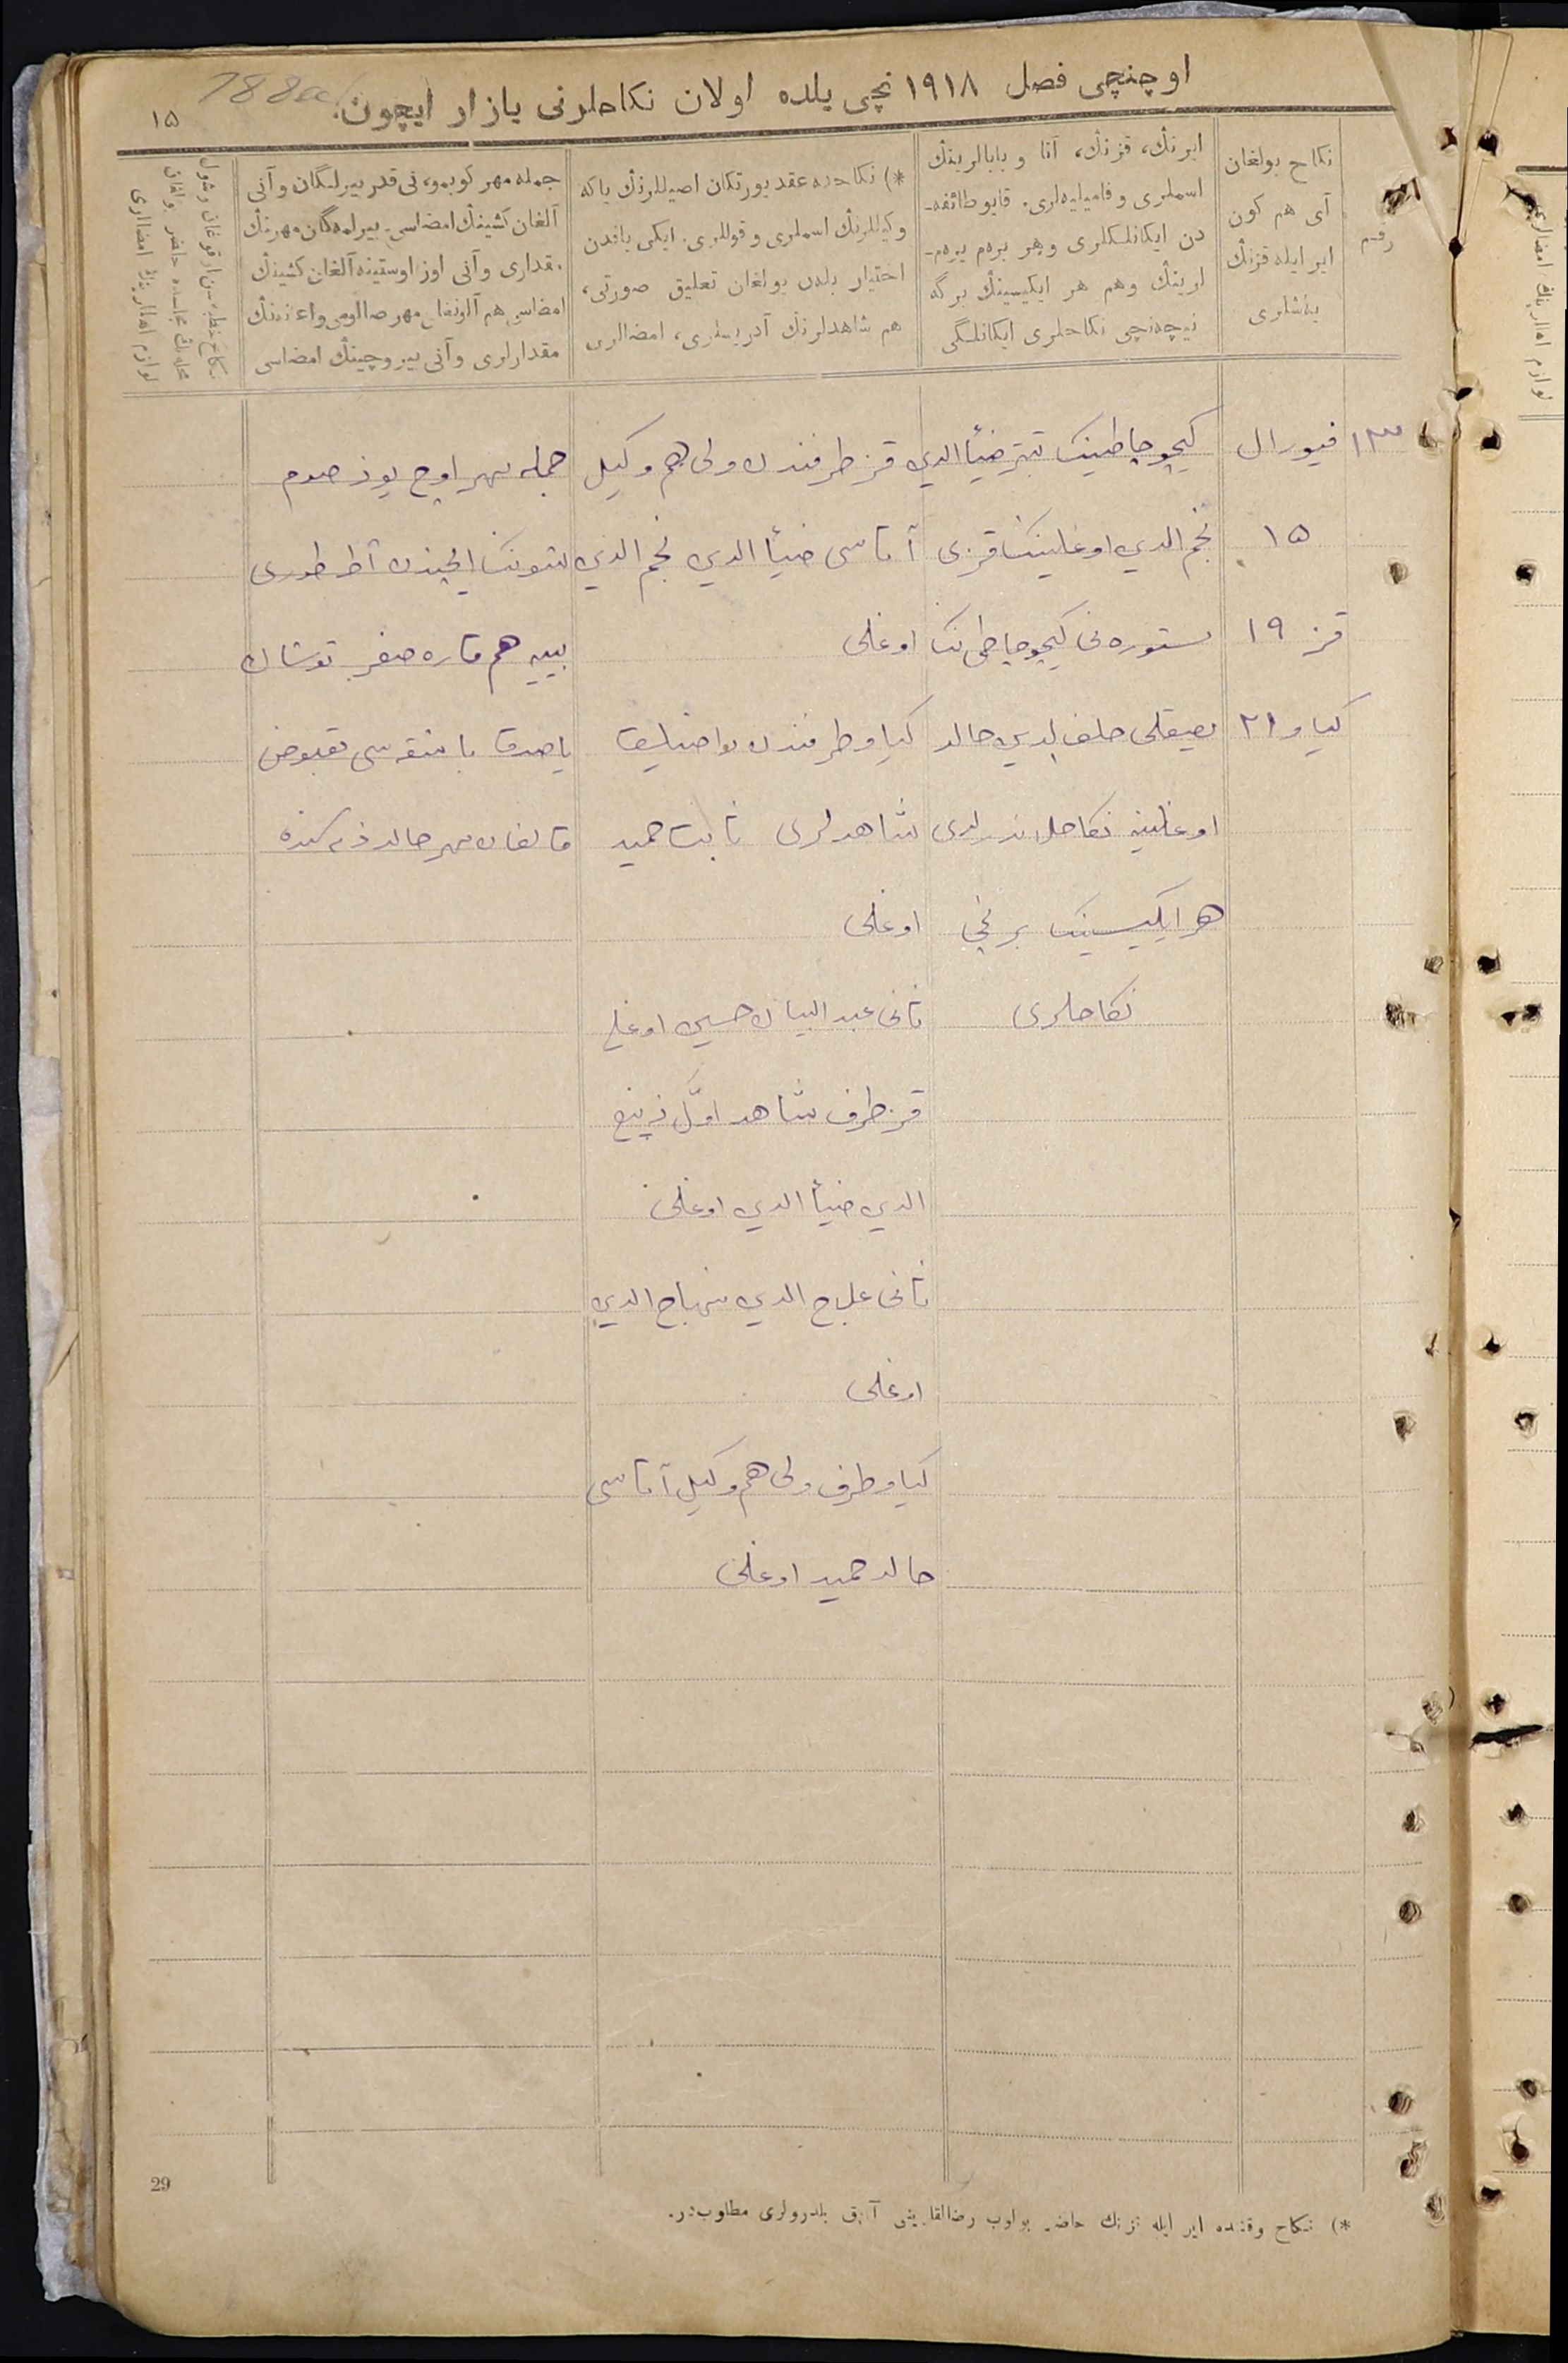 اوچنچی فصل ۱۹۱۸ نچی یلده اولان نكاحلرنی یازار ایچون.
788
۱۵
رقم
نكاح بولغان
آی هم كون
ایر ایله قزنڭ
یەشلری
ایرنڭ، قزنڭ، آتا و بابالرینڭ
اسملری و فامیلیەلری. قایو طائفه‌
دن ایكانلكلری وهر برەم برەم‌
لرینڭ وهم هر ایكیسینڭ برگه
نیچه‌نچی نكاحلری ایكانلیگی
*) نكاحده عقد یورتكان اصیللرنڭ یاكه
وكیللرنڭ اسملری و قوللری. ایكی یاقدن
اختیار بلەن بولغان تعلیق صورتی،
هم شاهدلرنڭ آدریسلری، امضالری
جمله مهر كوبمو، نی قدر بیرلگان و آنی
آلغان كشینڭ امضاسی. بیرلمەگان مهرنڭ
مقداری و آنی اوز اوستینه آلغان كشینڭ
امضاسی هم آلونغان مهر صالاومی واعانەنڭ
مقدارلری و آنی بیروچینڭ امضاسی
۱۳
فیورال
كیچو چاطینڭ ضیأ الدین
قز طرفندن ولی هم وكیل
جمله مهر اوچ یوز صوم
۱۵
نجم الدین اوغلینڭ قزی
آتاسی ضیأ الدین نجم الدین
شونڭ ایچندن آط طوری
قز ۱۹
مستوره نی كیچو چاطی نڭ
اوغلی
بییه هم قاره صغر توشاك
كیاو ۲۱
خلف الدین خالد
كیاو طرفندن
یاصدق باشقه سی مقبوض
اوغلینه نكاحلاندرلدی
شاهدلری ثابت حمید
قالغان مهر خالد ذمه سنده
هر ایكیسینڭ برنچی
اوغلی
نكاحلری
ثانی عبد البیان حسین اوغلی
قز طرف شاهد اوّل زین
الدین ضیأ الدین اوغلی
ثانی علاج الدین منهاج الدین
اوغلی
كیاو طرف ولی هم وكیل آتاسی
خالد حمید اوغلی
29
*) نكاح وقتنده ایر ایله قزنڭ حاضر بولوب رضالقلارینی آچق بلدرولری مطلوب‌در.